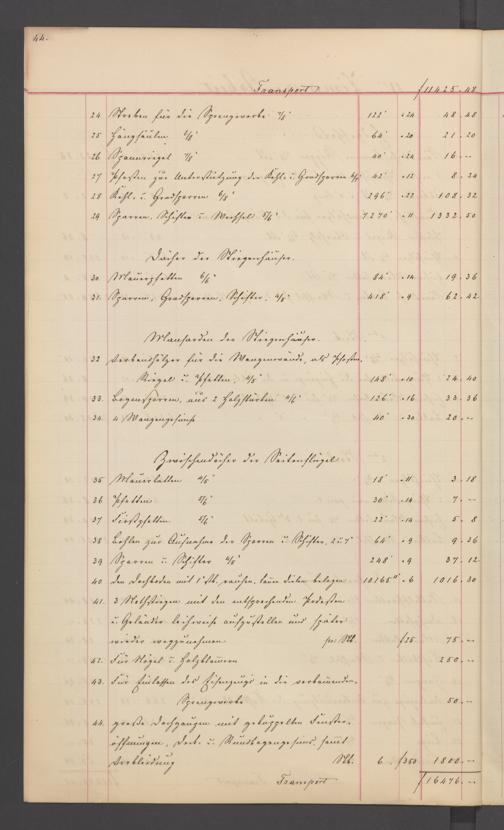 44.
Transport f 11425.48
24 Streben für die Sprengwerke 7/8" 122' .24 48.48
25 Hängsäulen 6/8" 64' .20 21.20
26 Spannriegel 7/8" 40' .24 16.--
27 Pfosten zur Unterstützung der Kehl- u Gradsparren 42' .12 8.24
28 Kehl- u. Gradsparren 6/8" 296' .22 108.32
29 Sparren, Schifter u Wechsel 5/6" 7270' .11 1332.50
Dächer der Stiegenhäuser.
30. Mauerpfetten 6/6" 84' .14 19.36
31. Sparren, Gradsparren, Schifter, 4/5" 418' .9 62.42
Mansarden der Stiegenhäuser.
32 Verbandhölzer für die Wangenwände, als Pfosten,
Riegel u. Pfetten, 4/5" 148' .10 24.40
33. Bogensparren, aus 2 Holzstärken 126' .16 33.36
34. 4 Wangengesimse 40' .30 20.--
Zwischendächer der Seitenflügel
35 Mauerlatten 4/5" 18' .11 3.18
36 Pfetten 5/6" 30' .14 7.--
37 Firstpfetten 5/6" 22' .14 5.8
38 Bohlen zur Aufnahme der Sparren u Schifter, 64' .9 9.36
39 Sparren u. Schifter 4/5" 248' .9 37.12
40 den Dachboden mit 1" rauhen Dielen belegen 10165□' .6 1016.30
41. 3 Nothstiegen mit den entsprechenden Podesten
u Geländer leihweise aufzustellen und später
wieder wegzunehmen pr. Stk. f 25 75.--
42. Für Nägel u Holzklammern 250.--
43. Für Einlassen des Eisenzeugs in die verbundenen
Sprengwerke 50.--
44. große Dachgaupen mit gekuppelten Fenster-
öffnungen, Deck- u Rundbogengesims, sammt
Verkleidung Stk. 6 f 300 1800.--
Transport f 16476.--